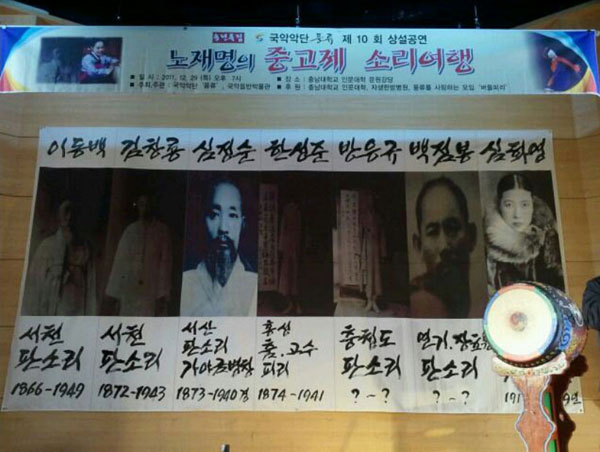 국악악단 풍류 제 10 회 상설공연
노재명의 중고제 소리여행
일 시 : 2011. 12. 29 (목) 오후 7시
장 소 : 충남대학교 인문대학 문원강당
주최,주관 : 국악악단 "풍류", 국악음반박물관
후 원 : 충남대학교 인문대학, 자생한방병원, 풍류를 사랑하는 모임
이동백 김창룡 심정순 한성준 방응규 백점봉 심화영
서천
판소리
1866-1949
서천
판소리
1872-1943
서산
판소리
가야금병창
1873-1940경
홍성
춤.고수
피리
1874-1941
충청도
판소리
?~?
연기.
판소리
?~?